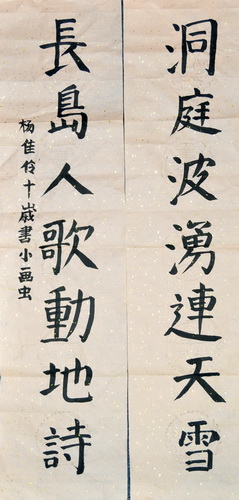 洞庭波湧連天雪
長島人歌動地詩
杨佳伶十歲書小画虫